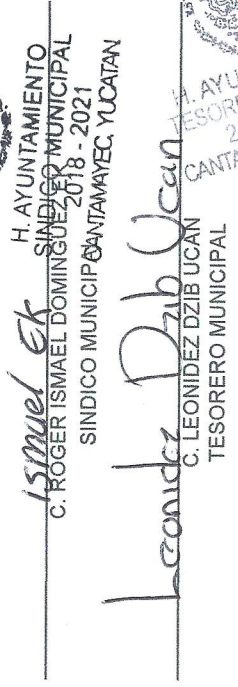 H. AYUNTAMIENTO
SINDICO MUNICIPAL
2018 - 2021
CANTAMAYEC, YUCATAN
Ismael Ek
C. ROGER ISMAEL DOMINGUEZ EK
SINDICO MUNICIPAL
H. AYU
TESORE
2
CANTA
Leonidez Dzib Ucan
C. LEONIDEZ DZIB UCAN
TESORERO MUNICIPAL